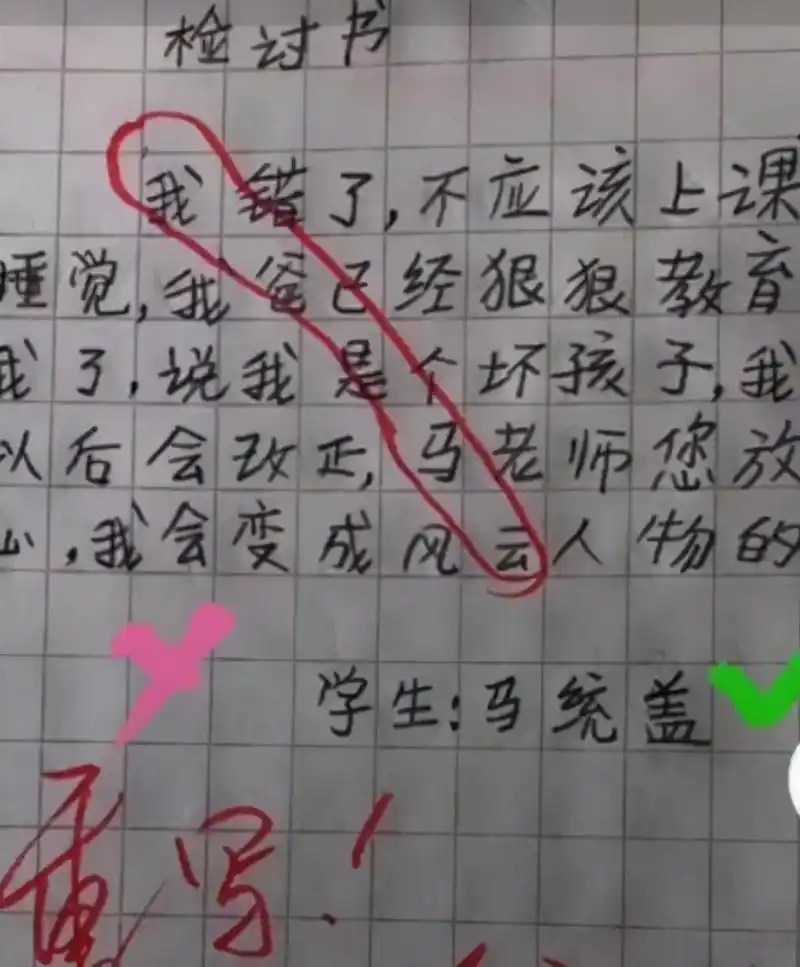 检讨书
我错了,不应该上课
睡觉,我爸已经狠狠教育
我了,说我是个坏孩子,我
以后会改正,马老师您放
心,我会变成风云人物的
学生:马统盖
重写!